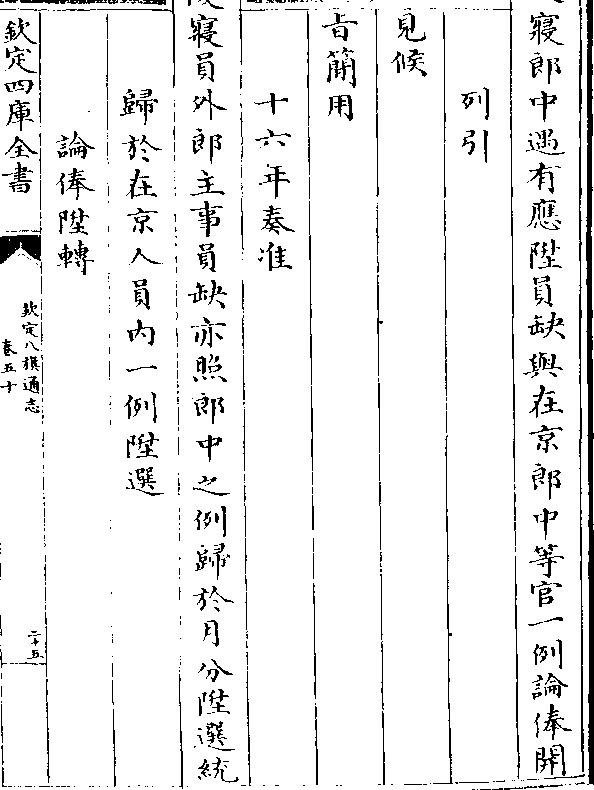 寢郎中遇有應陞員缺與在京郎中等官一例論俸開
列引
見候
旨簡用
十六年奏准
陵寢員外郎主事員缺亦照郎中之例歸於月分陞選統
歸於在京人員内一例陞選
論俸陞轉
欽定四庫全書
欽定八旗通志
卷五十
二十五